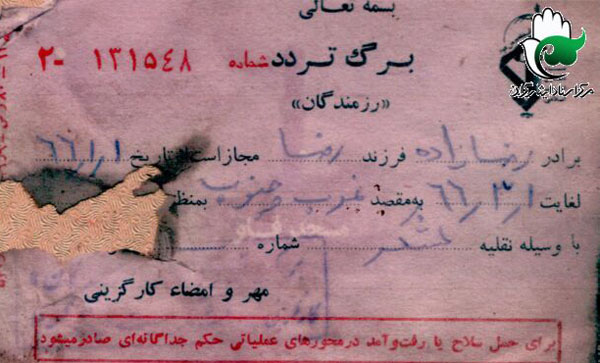 بسمه تعالی
برگ تردد شماره ۱۳۱۵۴۸ -۲
«رزمندگان»
برادر رضازاده فرزند رضا مجاز است از تاریخ ۶۶/۱/۱
لغایت ۶۶/۳/۱ به مقصد غرب و جنوب بمنظ
با وسیله نقلیه شماره
مهر و امضاء کارگزینی
برای حمل سلاح یا رفت‌وآمد درمحورهای عملیاتی حکم جداگانه‌ای صادرمیشود